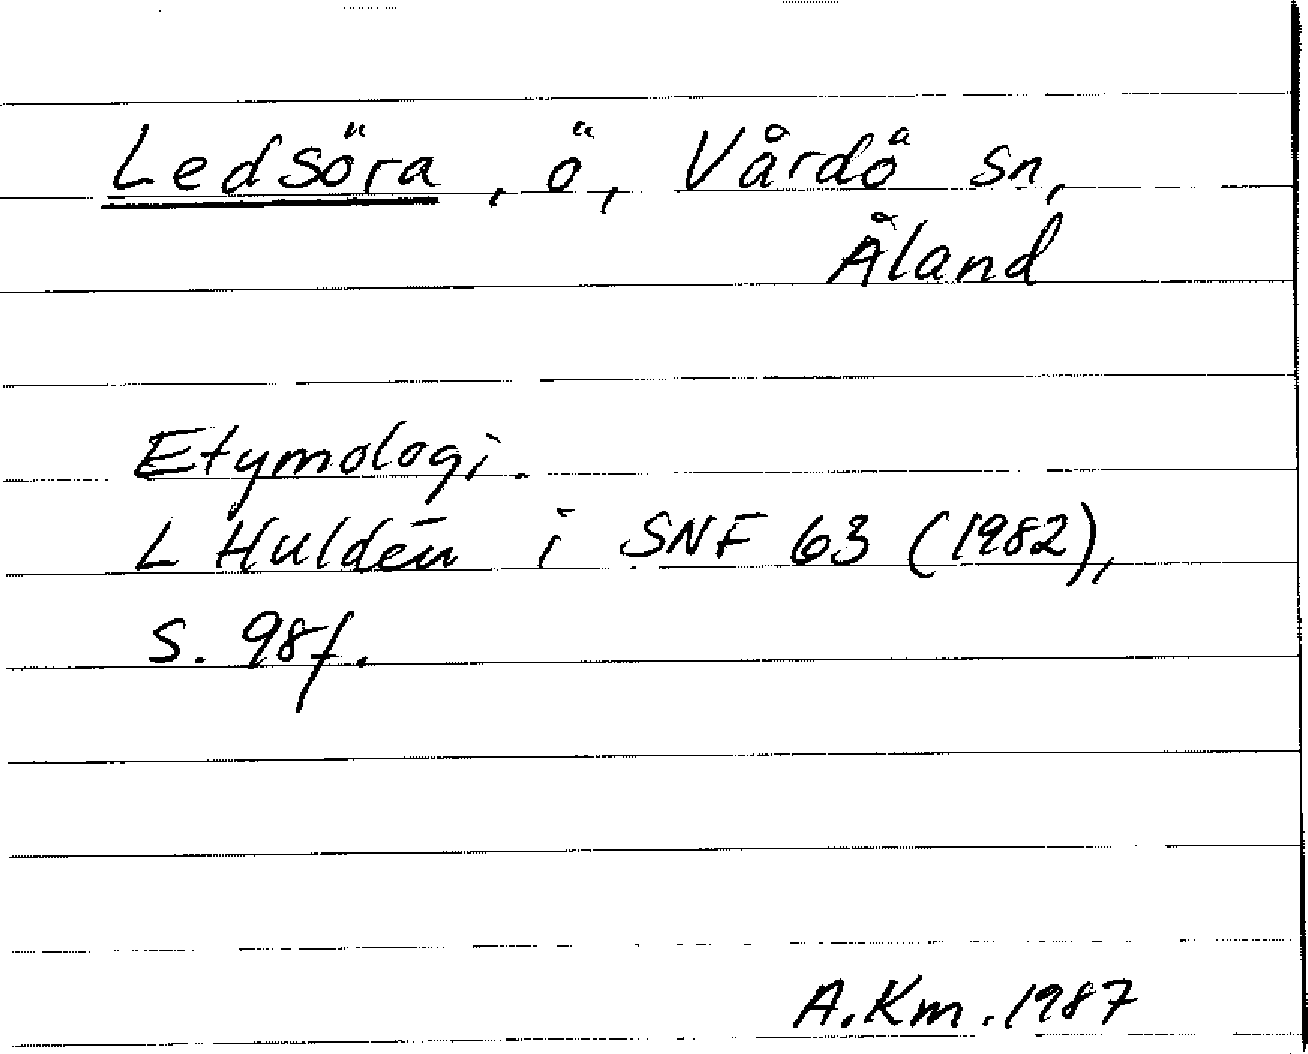 Ledsöra, ö, Vårdö sn,
Åland
Etymologi.
L Huldén i SNF 63 (1982),
s. 98f.
A.Km. 1987